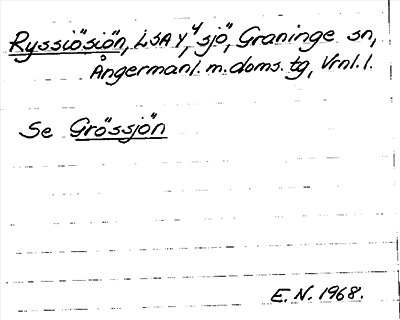 Ryssiösiön, LSA Y, 4 "sjö", Graninge sn,
Ångermanl. m. doms. tg, Vrnl. l.
Se Grössjön
E. N. 1968.